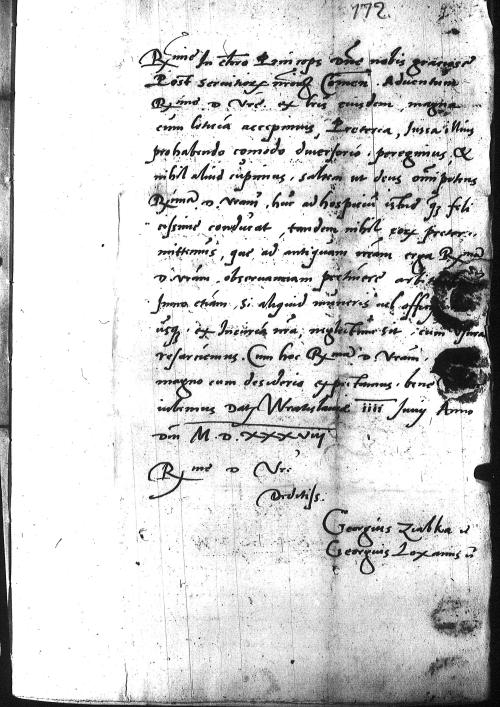 172
R me In Chro Princeps Dne nobis graciose
Post servitiorum nrorum Comen. Adventum
R me D Vre ex lris eiusdem magna
cum leticia accepimus, Preterea, Iussa illius
probabendo comodo diversorio peregimus, &
nihil aliud cupimus, saltem ut deus omipotens
R mam D Vram, huc ad hospicium istud q feli
cissime conducat, tandem nihil eox preter-
mittemus, que ad antiquam nram erga R mam
D. Vram observanciam pertinere
Immo etiam, si aliquid muneris vel
usq ex Incuria nra, neglectum sit, cum
resarciemus. Cum hoc R mam D Vram,
magno cum desiderio expectamus, bene
iubemus Datz Wratislavie iiii Junij Anno
Dni M. D. XXXVIII
R me D Vre
Deditiss.
Georgius Ziabka
Georgius Loxanus